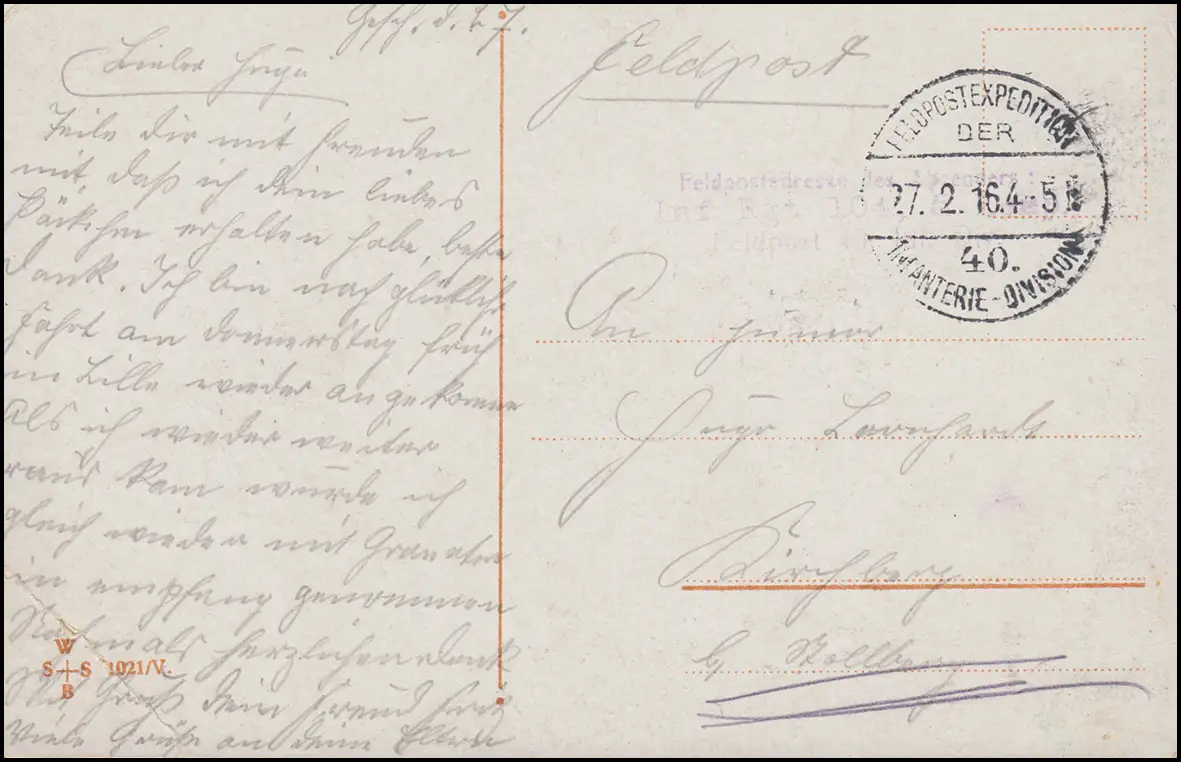 Gesch. d. 27.
Lieber Hugo
Teile dir mit Freuden
mit, daß ich dein liebes
Päckchen erhalten habe, beste
Dank. Ich bin nach glücklicher
Fahrt am Donnerstag früh
in Lille wieder angekommen
Als ich wieder weiter
raus kam wurde ich
gleich wieder mit Granaten
in empfang genommen
Nochmals herzlichen Dank
Mit Gruß dein Freund Fritz
Viele Grüße an deine Eltern
W
S S 1021/V.
B
Feldpost
FELDPOSTEXPEDITION
DER
27. 2. 16. 4-5
40.
INFANTERIE-DIVISION
Feldpostadresse des Absenders:
Inf Rgt 104
Feldpost
An
Hugo
Kirchberg
b. Stollberg